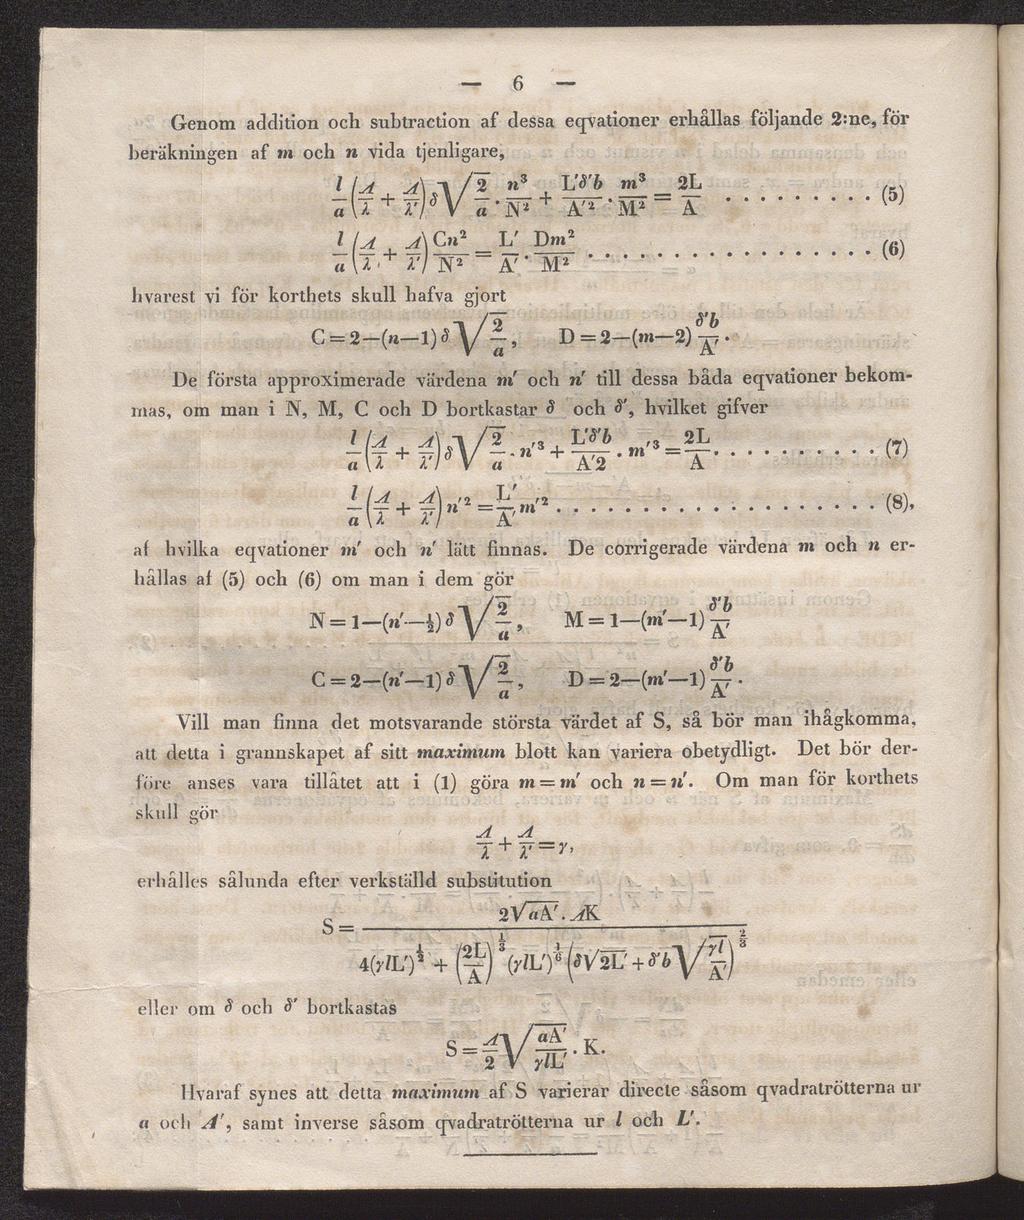 — 6 —
Genom addition och subtraction af dessa eqvationer erhållas följande 2:ne, för
beräkningen af m och n vida tjenligare,
l/a (Λ/λ + Λ/λ') δ √(2/a) · n³/N² + L'δ'b/A'² · m³/M² = 2L/A . . . . . . . . . . (5)
l/a (Λ/λ + Λ/λ') Cn²/N² = L'/A' · Dm²/M² . . . . . . . . . . . . . . . . . (6)
hvarest vi för korthets skull hafva gjort
C = 2—(n—1) δ √(2/a), D = 2—(m—2) δ'b/A'.
De första approximerade värdena m' och n' till dessa båda eqvationer bekom-
mas, om man i N, M, C och D bortkastar δ och δ', hvilket gifver
l/a (Λ/λ + Λ/λ') δ √(2/a) · n'³ + L'δ'b/A'2 · m'³ = 2L/A . . . . . . . . . . (7)
l/a (Λ/λ + Λ/λ') n'² = L'/A' m'² . . . . . . . . . . . . . . . . . . . (8),
af hvilka eqvationer m' och n' lätt finnas. De corrigerade värdena m och n er-
hållas af (5) och (6) om man i dem gör
N = 1—(n'—½) δ √(2/a), M = 1—(m'—1) δ'b/A'
C = 2—(n'—1) δ √(2/a), D = 2—(m'—1) δ'b/A'.
Vill man finna det motsvarande största värdet af S, så bör man ihågkomma,
att detta i grannskapet af sitt maximum blott kan variera obetydligt. Det bör der-
före anses vara tillåtet att i (1) göra m = m' och n = n'. Om man för korthets
skull gör
Λ/λ + Λ/λ' = γ,
erhålles sålunda efter verkställd substitution
S = 2√(aA') . ΛK / (4(γlL')^½ + (2L/A)^⅓ (γlL')^⅙ (δ√(2L') + δ'b √(γl/A'))^⅔)
eller om δ och δ' bortkastas
S = Λ/2 √(aA'/γlL') . K.
Hvaraf synes att detta maximum af S varierar directe såsom qvadratrötterna ur
a och A', samt inverse såsom qvadratrötterna ur l och L'.